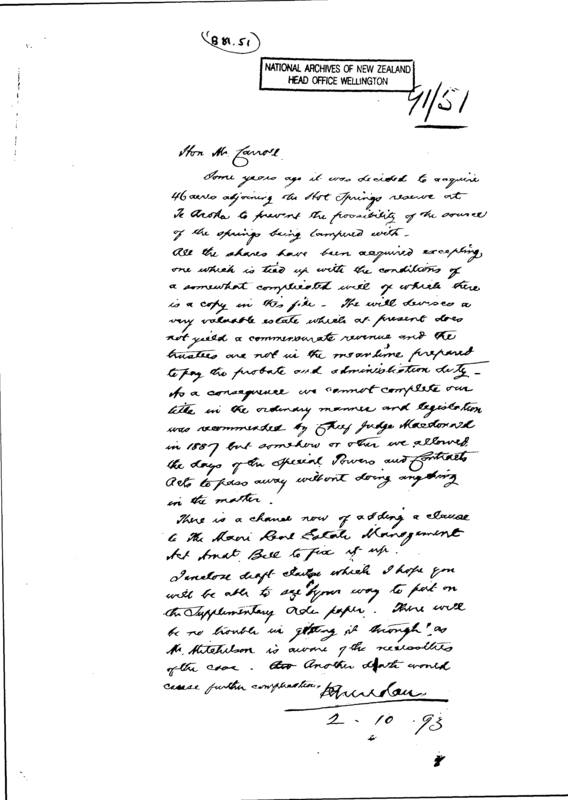 (B 81. 51)
NATIONAL ARCHIVES OF NEW ZEALAND
HEAD OFFICE WELLINGTON
91/51
Hon Mr Carroll
Some years ago it was decided to acquire
46 acres adjoining the Hot Springs reserve at
Te Aroha to prevent the possibility of the source
of the springs being tampered with -
All the shares have been acquired excepting
one which is tied up with the conditions of
a somewhat complicated will of which there
is a copy in this file - The will devises a
very valuable estate which at present does
not yield a commensurate revenue and the
trustees are not in the meantime prepared
to pay the probate and administration duty -
As a consequence we cannot complete our
title in the ordinary manner and legislation
was recommended by Chief Judge Macdonald
in 1887 but somehow or other we allowed
the days of the Special Powers and Contracts
Acts to pass away without doing anything
in the matter.
There is a chance now of adding a clause
to The Maori Real Estate Management
Act Amdt. Bill to fix it up.
I enclose draft clause which I hope you
will be able to see your way to put on
the Supplementary Order paper. There will
be no trouble in getting it through as
Mr. Mitchelson is aware of the necessities
of the case. Another death would
cause further complication.
2 - 10 . 93